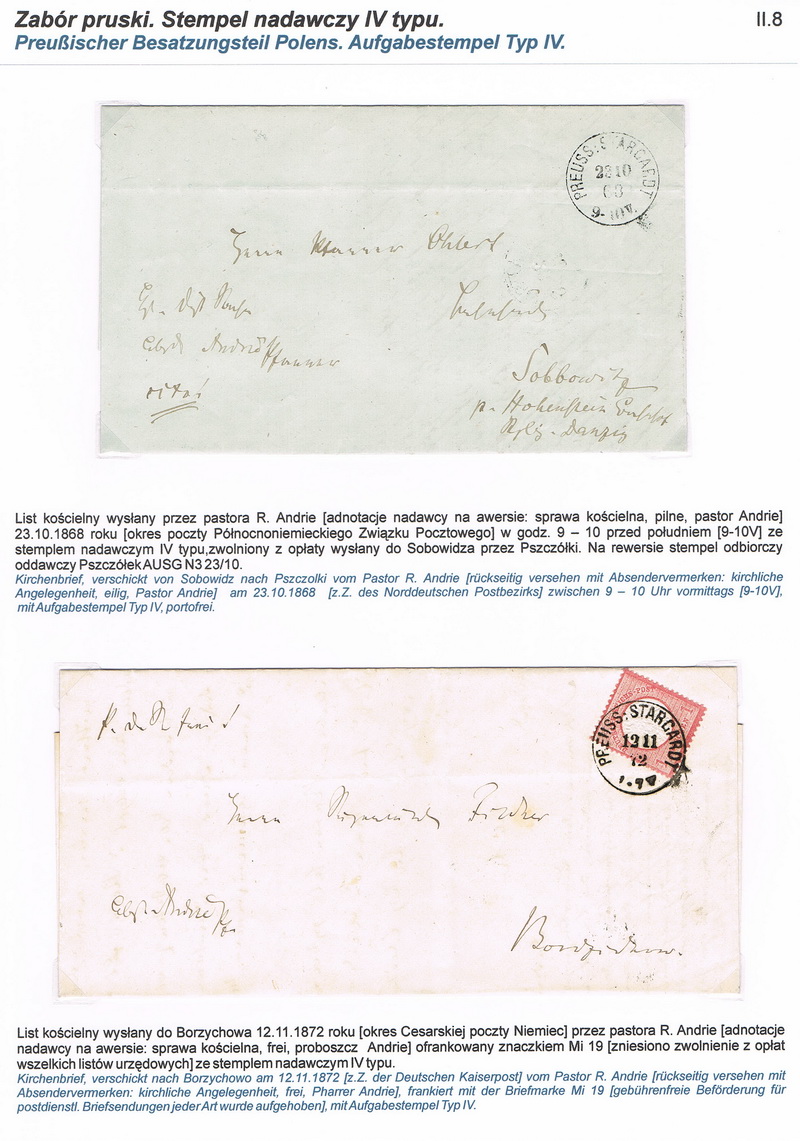 Zabór pruski. Stempel nadawczy IV typu.
II.8
Preußischer Besatzungsteil Polens. Aufgabestempel Typ IV.
PREUSS: STARGARDT
23 10
68
9-10V.
Herrn Pfarrer Ohlert
Andrié Pfarrer
cito!
Sobbowitz
p. Hohenstein
Danzig
List kościelny wysłany przez pastora R. Andrie [adnotacje nadawcy na awersie: sprawa kościelna, pilne, pastor Andrie]
23.10.1868 roku [okres poczty Północnoniemieckiego Związku Pocztowego] w godz. 9 – 10 przed południem [9-10V] ze
stemplem nadawczym IV typu,zwolniony z opłaty wysłany do Sobowidza przez Pszczółki. Na rewersie stempel odbiorczy
oddawczy Pszczółek AUSG N3 23/10.
Kirchenbrief, verschickt von Sobowidz nach Pszczolki vom Pastor R. Andrie [rückseitig versehen mit Absendervermerken: kirchliche
Angelegenheit, eilig, Pastor Andrie] am 23.10.1868 [z.Z. des Norddeutschen Postbezirks] zwischen 9 – 10 Uhr vormittags [9-10V],
mit Aufgabestempel Typ IV, portofrei.
PREUSS: STARGARDT
12 11
72
Herrn
Andrié Pf
List kościelny wysłany do Borzychowa 12.11.1872 roku [okres Cesarskiej poczty Niemiec] przez pastora R. Andrie [adnotacje
nadawcy na awersie: sprawa kościelna, frei, proboszcz Andrie] ofrankowany znaczkiem Mi 19 [zniesiono zwolnienie z opłat
wszelkich listów urzędowych] ze stemplem nadawczym IV typu.
Kirchenbrief, verschickt nach Borzychowo am 12.11.1872 [z.Z. der Deutschen Kaiserpost] vom Pastor R. Andrie [rückseitig versehen mit
Absendervermerken: kirchliche Angelegenheit, frei, Pharrer Andrie], frankiert mit der Briefmarke Mi 19 [gebührenfreie Beförderung für
postdienstl. Briefsendungen jeder Art wurde aufgehoben], mit Aufgabestempel Typ IV.